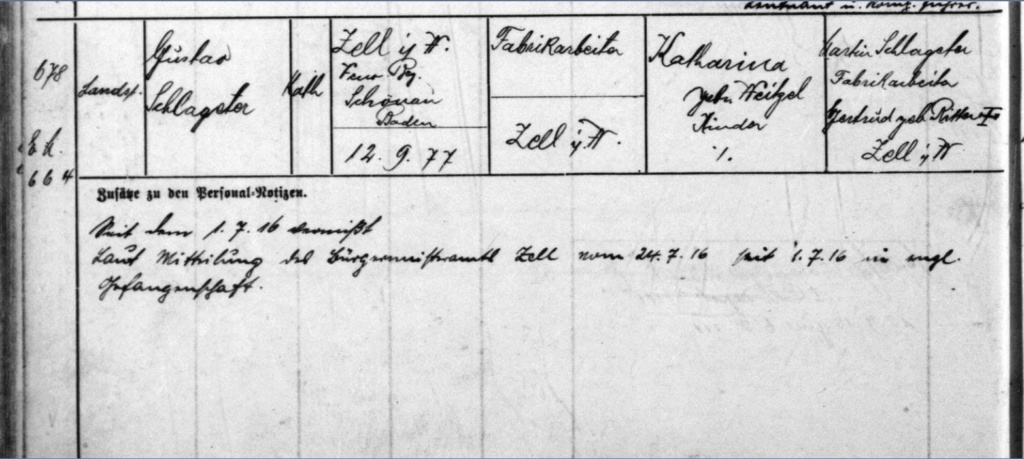 678
Landst.
E. k.
664
Gustav
Schlageter
Kath
Zell i/W.
Schönau
Baden
12. 9. 77
Fabrikarbeiter
Zell i/W.
Katharina
geb. Weitzel
Kinder
1.
Martin Schlageter
Fabrikarbeiter
Gertrud geb. Ritter
Zell i/W
Zusätze zu den Personal-Notizen.
Seit dem 1. 7. 16 vermißt
Laut Mitteilung des Bürgermeisteramts Zell vom 24. 7. 16 seit 1. 7. 16 in engl.
Gefangenschaft.